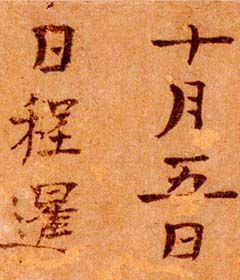 十月五日
日程暹